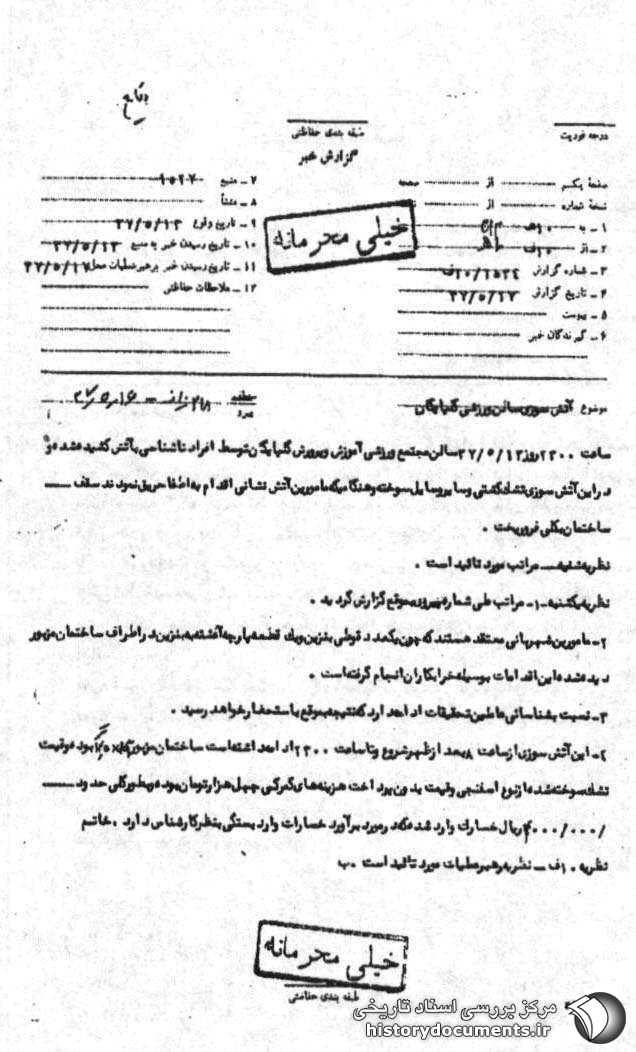 وقایع
طبقه بندی حفاظتی
درجه فوریت
گزارش خبر
صفحه یکم از صفحه
نسخه شماره از
۱ – به ۱۰هـ
۲ – از ۱۰ف
۳ – شماره گزارش
۴ – تاریخ گزارش
۵ – پیوست
۶ – گیرندگان خبر
۷ – منبع
۸ – منشأ
۹ – تاریخ وقوع ۳۷/۵/۱۳
۱۰ – تاریخ رسیدن خبر به منبع ۳۷/۵/۱۳
۱۱ – تاریخ رسیدن خبر به رهبر عملیات محل
۱۲ – ملاحظات حفاظتی
خیلی محرمانه
موضوع آتش سوزی سالن ورزشی گلپایگان
ساعت ۲۳۰۰ روز ۳۷/۵/۱۳ سالن مجتمع ورزشی آموزش و پرورش گلپایگان توسط افراد ناشناسی بآتش کشیده شده و
در این آتش سوزی تشک کشتی و سایر وسایل سوخته و هنگامیکه مامورین آتش نشانی اقدام به اطفا حریق نمودند سقف
ساختمان بکلی فرو ریخت .
نظریه شنبه – مراتب مورد تائید است .
نظریه یکشنبه – ۱ – مراتب طی شماره بموقع گزارش گردید .
۲ – مامورین شهربانی معتقد هستند که چون یکعدد قوطی بنزین و یک قطعه پارچه آغشته به بنزین در اطراف ساختمان مزبور
دیده شده این اقدامات بوسیله خرابکاران انجام گرفته است .
۳ – نسبت بشناسائی عاملین تحقیقات ادامه دارد که نتیجه بموقع باستحضار خواهد رسید .
۴ – این آتش سوزی از ساعت ۸ بعد از ظهر شروع و تا ساعت ۲۳۰۰ ادامه داشته است ساختمان مزبور بوده و قیمت
تشک سوخته شده از نوع اسفنجی و قیمت بدون پرداخت هزینه های گمرکی چهل هزار تومان بوده و بطور کلی حدود
ریال خسارت وارد شده که در مورد برآورد خسارات وارده بستگی بنظر کارشناس دارد . خاتم
نظریه ۱۰ف – نظریه رهبر عملیات مورد تائید است . ب
خیلی محرمانه
طبقه بندی حفاظتی
مرکز بررسی اسناد تاریخی
historydocuments.ir